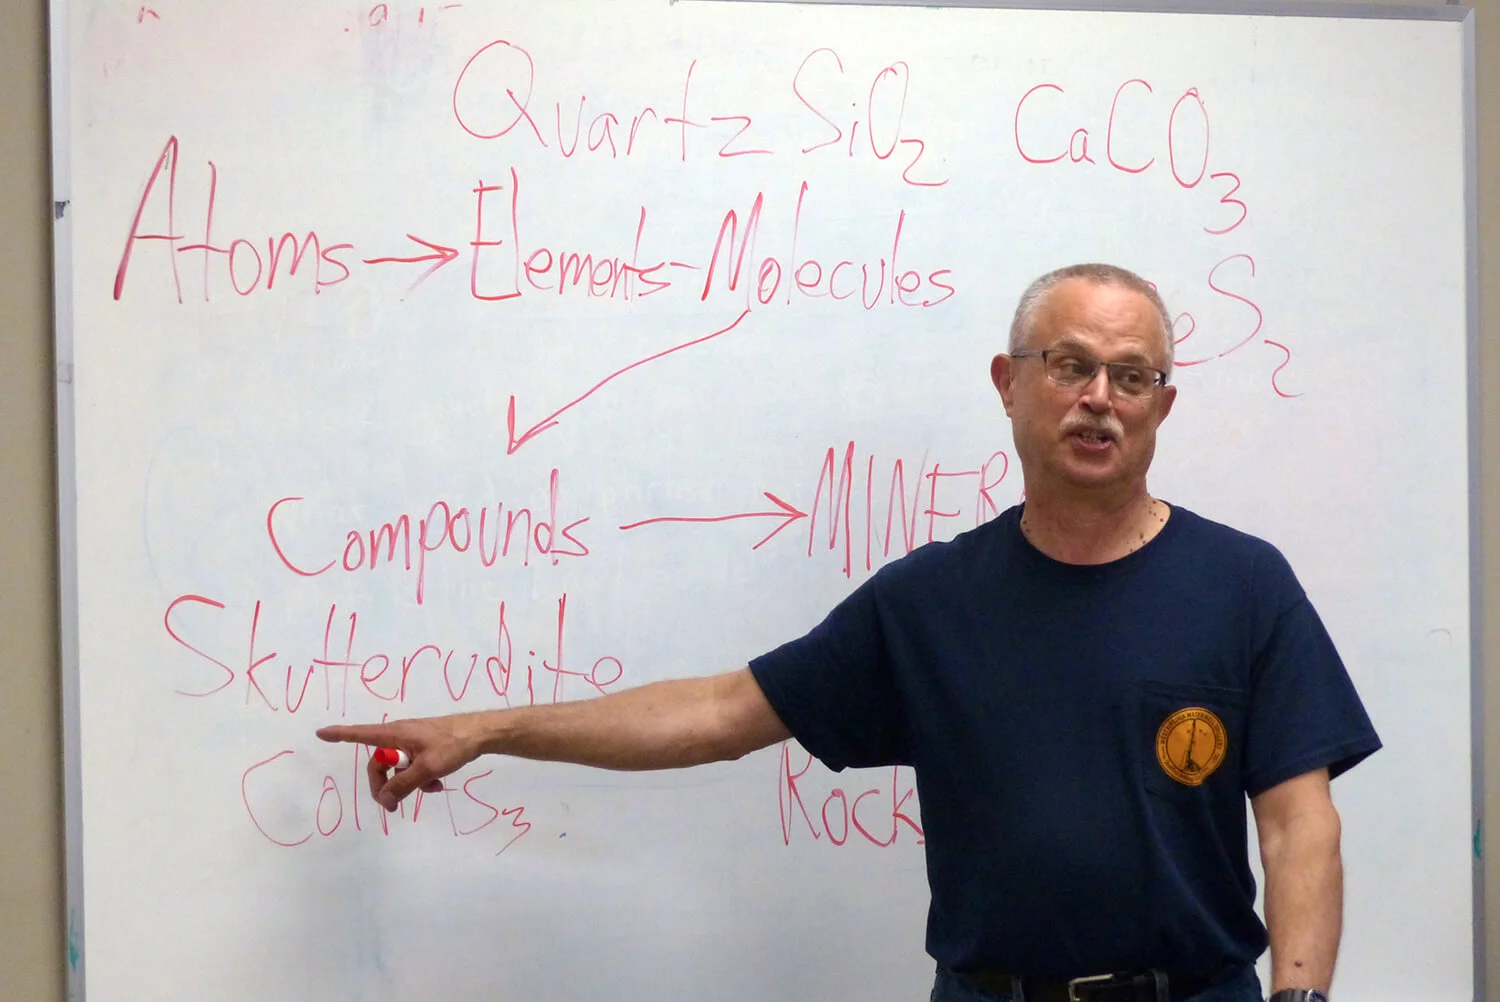 Quartz SiO2 CaCO3
Atoms → Elements - Molecules
eS2
Compounds → MINER
Skutterudite
Rock